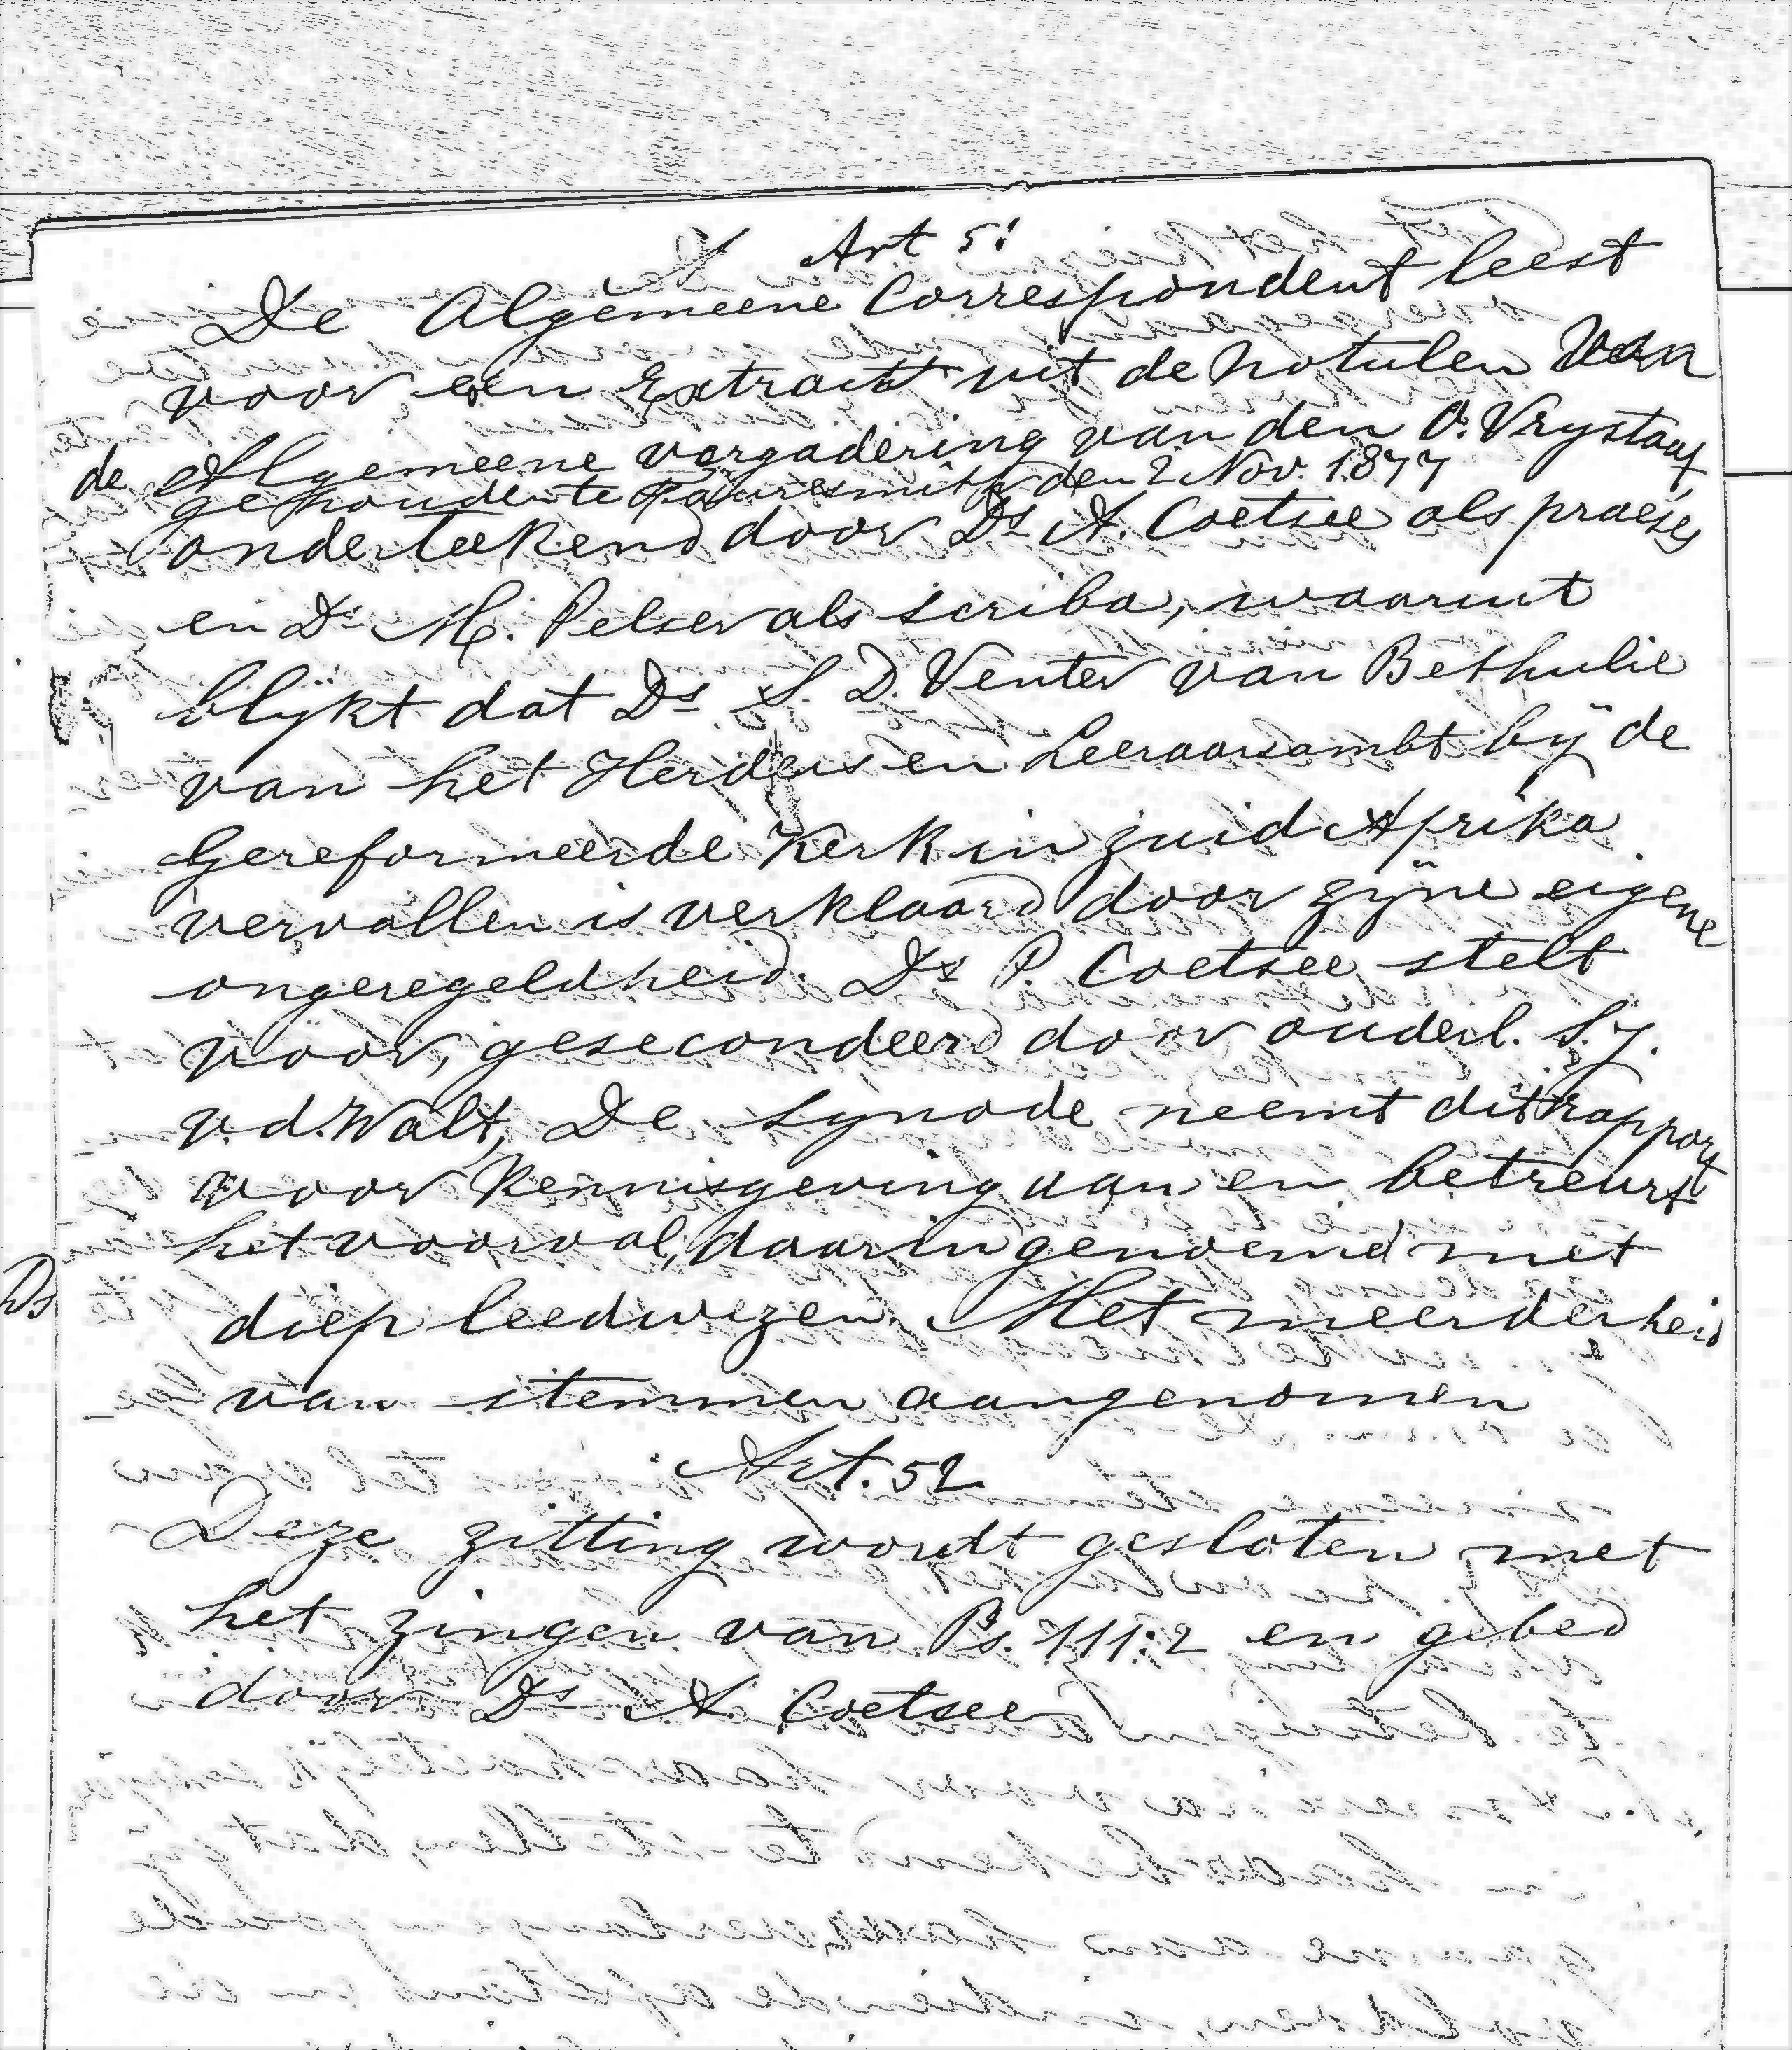 Art 51
De Algemeene Correspondent leest
voor een Extract uit de Notulen van
de Algemeene vergadering van den O. Vrystaat
gehouden te Fauresmith den 2 Nov. 1877
onderteekend door Ds A. Coetsee als praeses
en Ds M. Pelser als scriba, waaruit
blÿkt dat Ds S. D. Venter van Bethulie
van het Herders en Leeraarsambt bÿ de
Gereformeerde Kerk in Zuid Afrika
vervallen is verklaard door zÿne eigene
ongeregeldheid. Ds P. Coetsee stelt
voor, gesecondeerd door ouderl. S. J.
v. d. Walt, De synode neemt dit rapport
voor kennisgeving aan en betreurt
het voorval, daarin genoemd met
Ds
diep leedwezen. Met meerderheid
van stemmen aangenomen
Art. 52
Deze zitting wordt gesloten met
het zingen van Ps. 111:2 en gebed
door Ds A. Coetsee